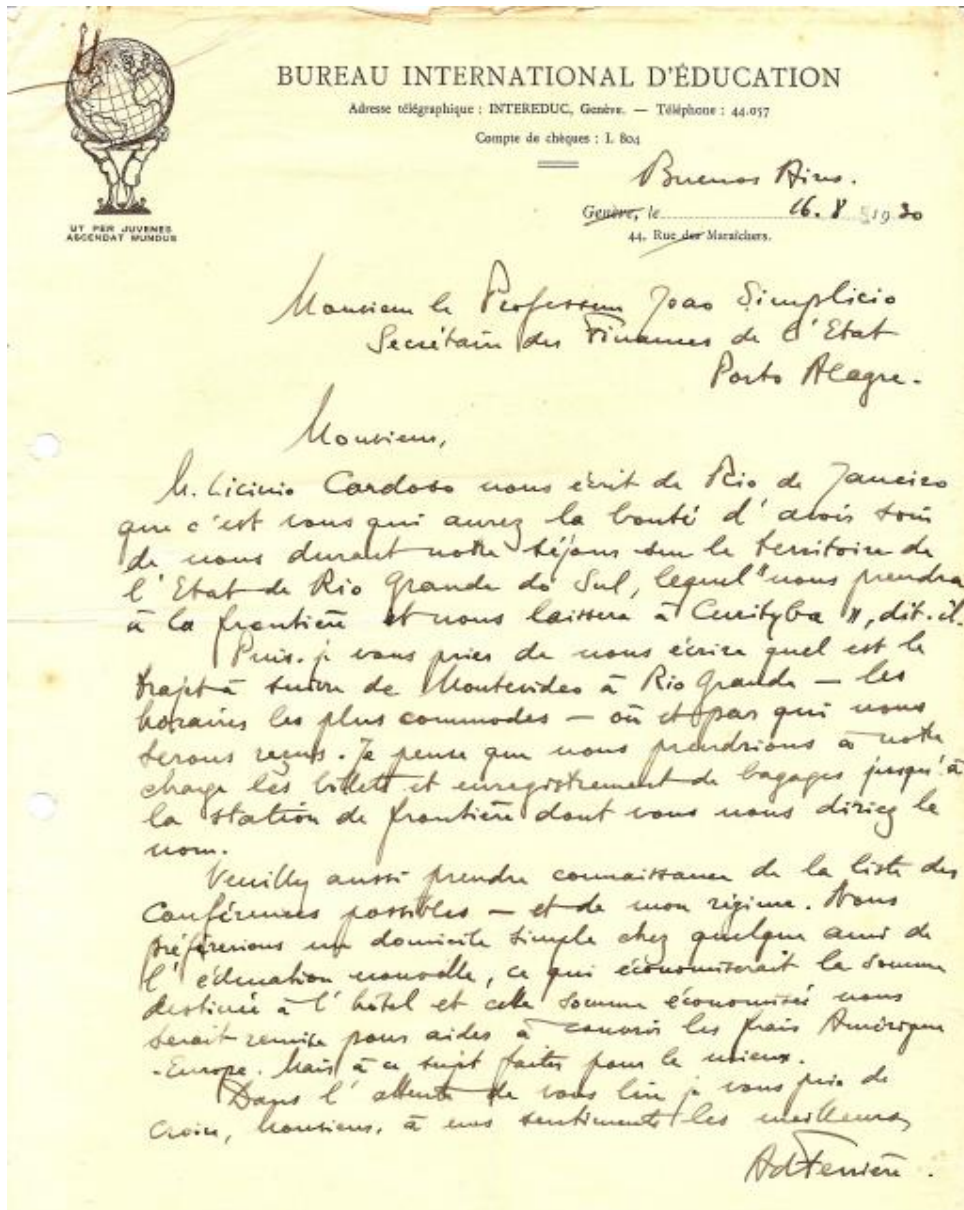 BUREAU INTERNATIONAL D'ÉDUCATION
Adresse télégraphique : INTEREDUC, Genève. — Téléphone : 44.057
Compte de chèques : I. 804
UT PER JUVENES
ASCENDAT MUNDUS
Buenos Aires.
Genève, le 16.8 1930
44, Rue des Maraîchers.
Monsieur le Professeur Joao Simplicio
Secrétaire des Finances de l'Etat
Porto Alegre.
Monsieur,
M. Licinio Cardoso nous écrit de Rio de Janeiro
que c'est vous qui aurez la bonté d'avoir soin
de nous durant notre séjour sur le territoire de
l'Etat de Rio Grande do Sul, lequel "nous prendra
à la frontière et nous laissera à Curityba", dit-il.
Puis-je vous prier de nous écrire quel est le
trajet à suivre de Montevideo à Rio Grande — les
horaires les plus commodes — où et par qui nous
serons reçus. Je pense que nous prendrions à notre
charge les billets et enregistrement de bagages jusqu'à
la station de frontière dont vous nous diriez le
nom.
Veuillez aussi prendre connaissance de la liste des
Conférences possibles — et de mon régime. Nous
préférerions un domicile simple chez quelque ami de
l'éducation nouvelle, ce qui économiserait la somme
destinée à l'hôtel et cette somme économisée nous
serait remise pour aider à couvrir les frais Amérique
-Europe. Mais à ce sujet faites pour le mieux.
Dans l'attente de vous lire je vous prie de
croire, Monsieur, à mes sentiments les meilleurs
Ad Ferrière.